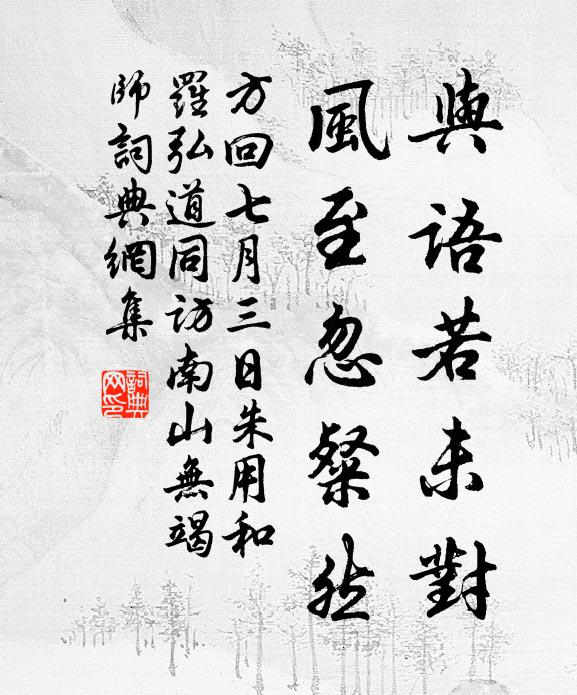 與語若未對
風至忽粲然
方回七月三日朱用和
羅弘道同訪南山無竭
師詞典網集
詞典網印